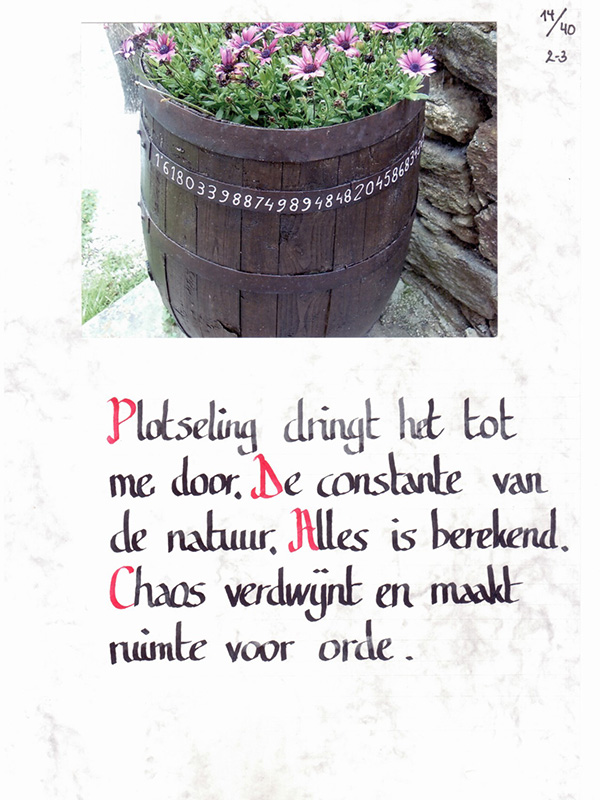 14/40
2-3
1'61803398874989484820458683
Plotseling dringt het tot
me door. De constante van
de natuur. Alles is berekend.
Chaos verdwijnt en maakt
ruimte voor orde.